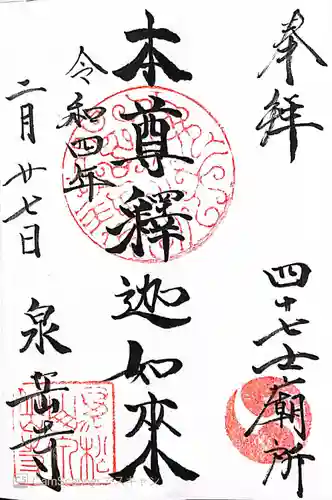 奉拝
四十七士廟所
本尊釋迦如來
令和四年
二月廿七日
泉岳寺